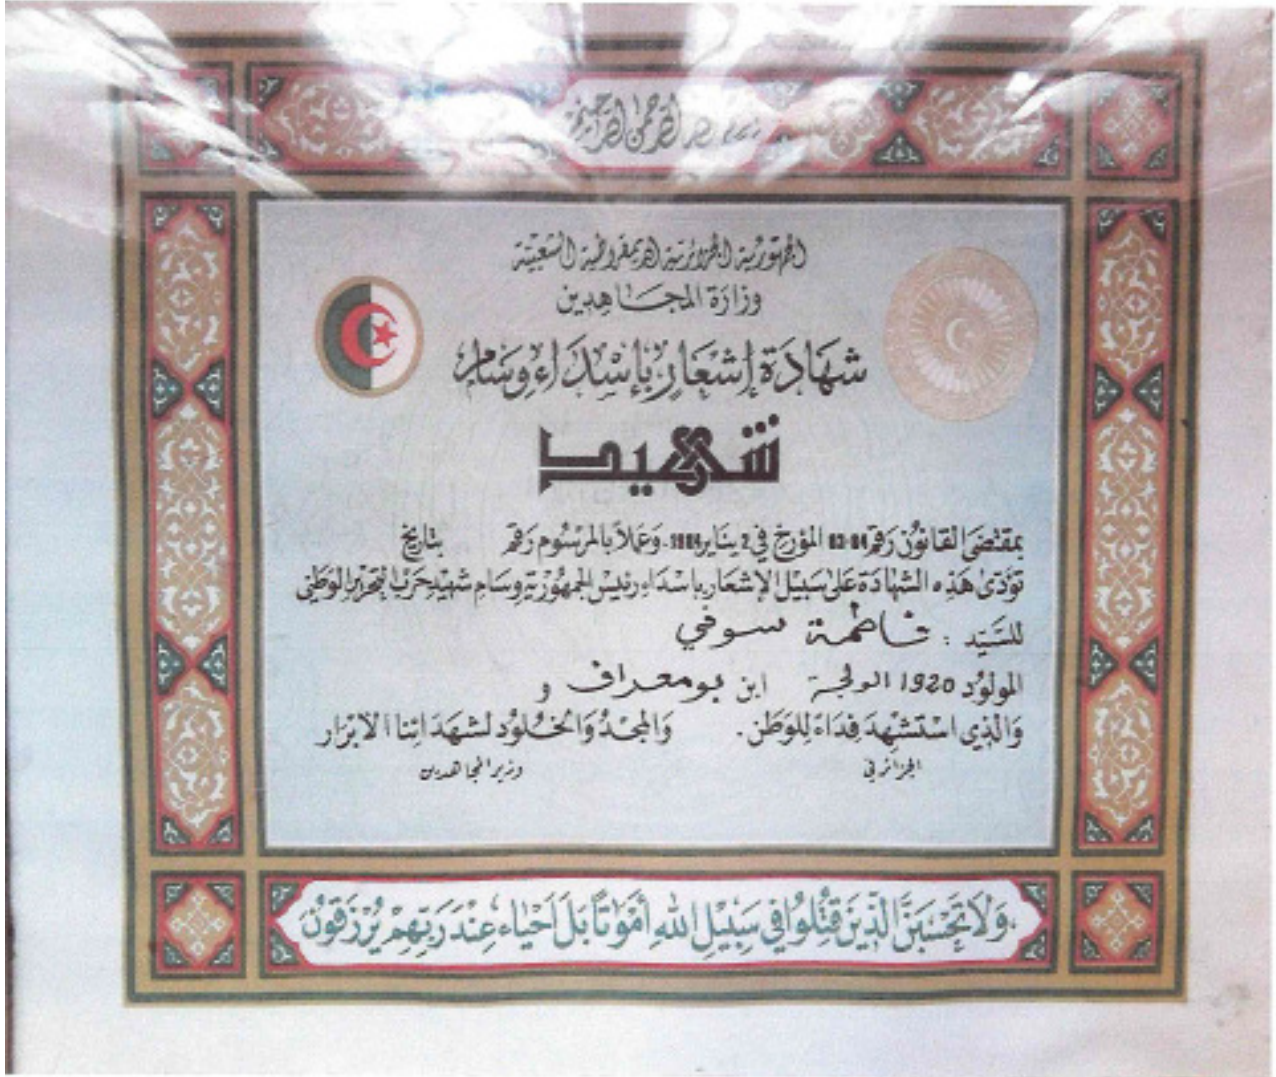 بسم الله الرحمن الرحيم
الجمهورية الجزائرية الديمقراطية الشعبية
وزارة المجاهدين
شهادة إشعار بإسداء وسام
شهيد
بمقتضى القانون رقم 84-02 المؤرخ في 2 يناير 1984. وعملا بالمرسوم رقم بتاريخ
تؤدى هذه الشهادة على سبيل الإشعار باسداء رئيس الجمهورية وسام شهيد حرب التحرير الوطني
للسيد : فاطمة سوفي
المولود 1920 الولجة ابن بومعراف و
والذي استشهد فداء للوطن. والمجد والخلود لشهدائنا الابرار
الجزائر في وزير المجاهدين
وَلَا تَحْسَبَنَّ الَّذِينَ قُتِلُوا فِي سَبِيلِ اللهِ أَمْوَاتًا بَلْ أَحْيَاء عِنْدَ رَبِّهِمْ يُرْزَقُونَ